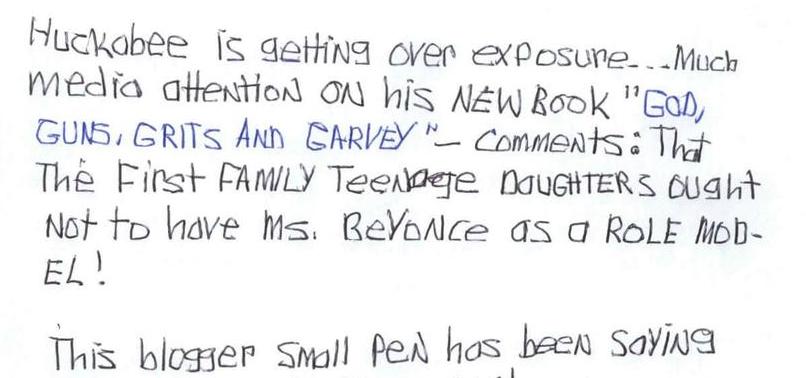 Huckabee is getting over exposure...Much
media attention on his NEW BOOK "GOD,
GUNS, GRITS AND GARVEY"– Comments: That
The First FAMILY Teenage DAUGHTERS ought
Not to have Ms. BeYoNce as a ROLE MOD-
EL!
This blogger Small Pen has been saying